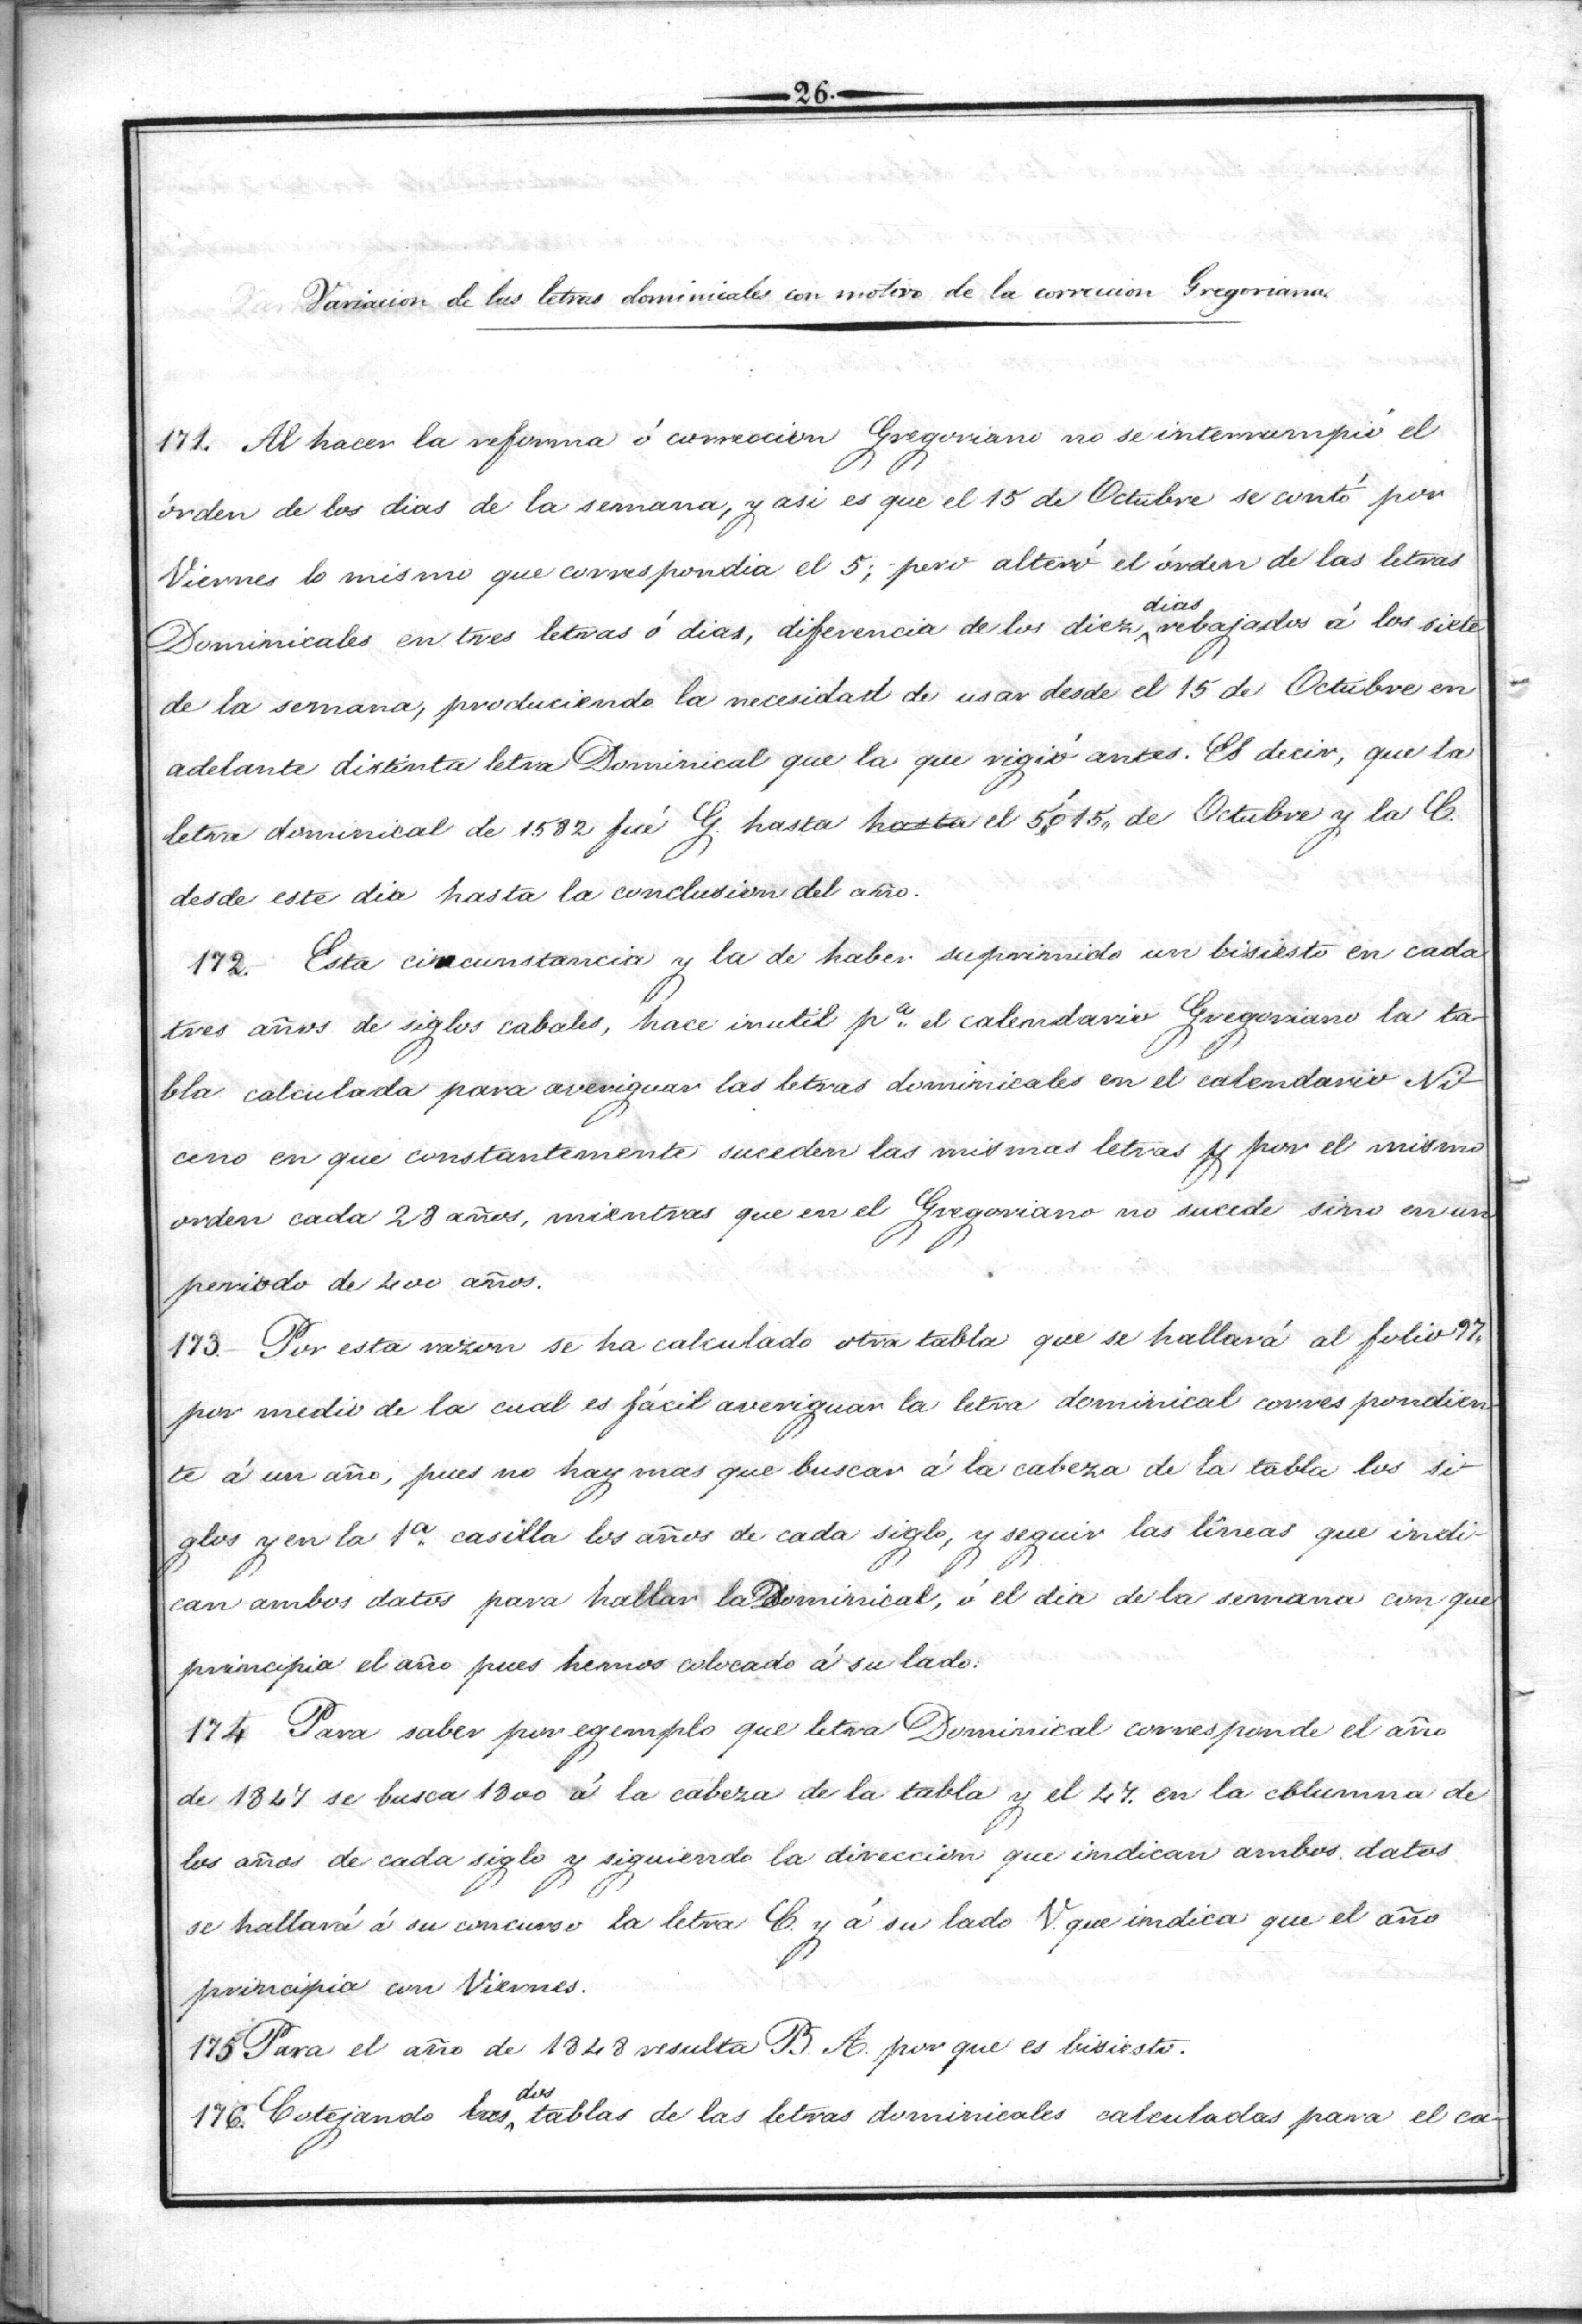 26.
Variacion de las letras dominicales con motivo de la correccion Gregoriana.
171. Al hacer la reforma ó correccion Gregoriano no se interrumpió el
órden de los dias de la semana, y asi es que el 15 de Octubre se contó por
Viernes lo mismo que correspondia el 5; pero alteró el órden de las letras
Dominicales en tres letras ó dias, diferencia de los diez dias rebajados á los siete
de la semana, produciendo la necesidad de usar desde el 15 de Octubre en
adelante distinta letra Dominical que la que rigió antes. Es decir, que la
letra dominical de 1582 fué G. hasta hasta el 5,, ó 15,, de Octubre y la C.
desde este dia hasta la conclusion del año.
172. Esta circunstancia y la de haber suprimido un bisiesto en cada
tres años de siglos cabales, hace inutil pª. el calendario Gregoriano la ta-
bla calculada para averiguar las letras dominicales en el calendario Ni-
ceno en que constantemente suceden las mismas letras y por el mismo
orden cada 28 años, mientras que en el Gregoriano no sucede sino en un
periodo de 400 años.
173.- Por esta razon se ha calculado otra tabla que se hallará al folio 97,,
por medio de la cual es fácil averiguar la letra dominical correspondien-
te á un año, pues no hay mas que buscar á la cabeza de la tabla los si-
glos y en la 1ª. casilla los años de cada siglo, y seguir las líneas que indi-
can ambos datos para hallar la Dominical, ó el dia de la semana con que
principia el año pues hemos colocado á su lado.
174 Para saber por egemplo que letra Dominical corresponde el año
de 1847 se busca 1800 á la cabeza de la tabla y el 47. en la columna de
los años de cada siglo y siguiendo la direccion que indican ambos datos
se hallará á su concurso la letra C. y á su lado V. que indica que el año
principia con Viernes.
175 Para el año de 1848 resulta B. A. por que es bisiesto.
176. Cotejando las dos tablas de las letras dominicales calculadas para el ca-